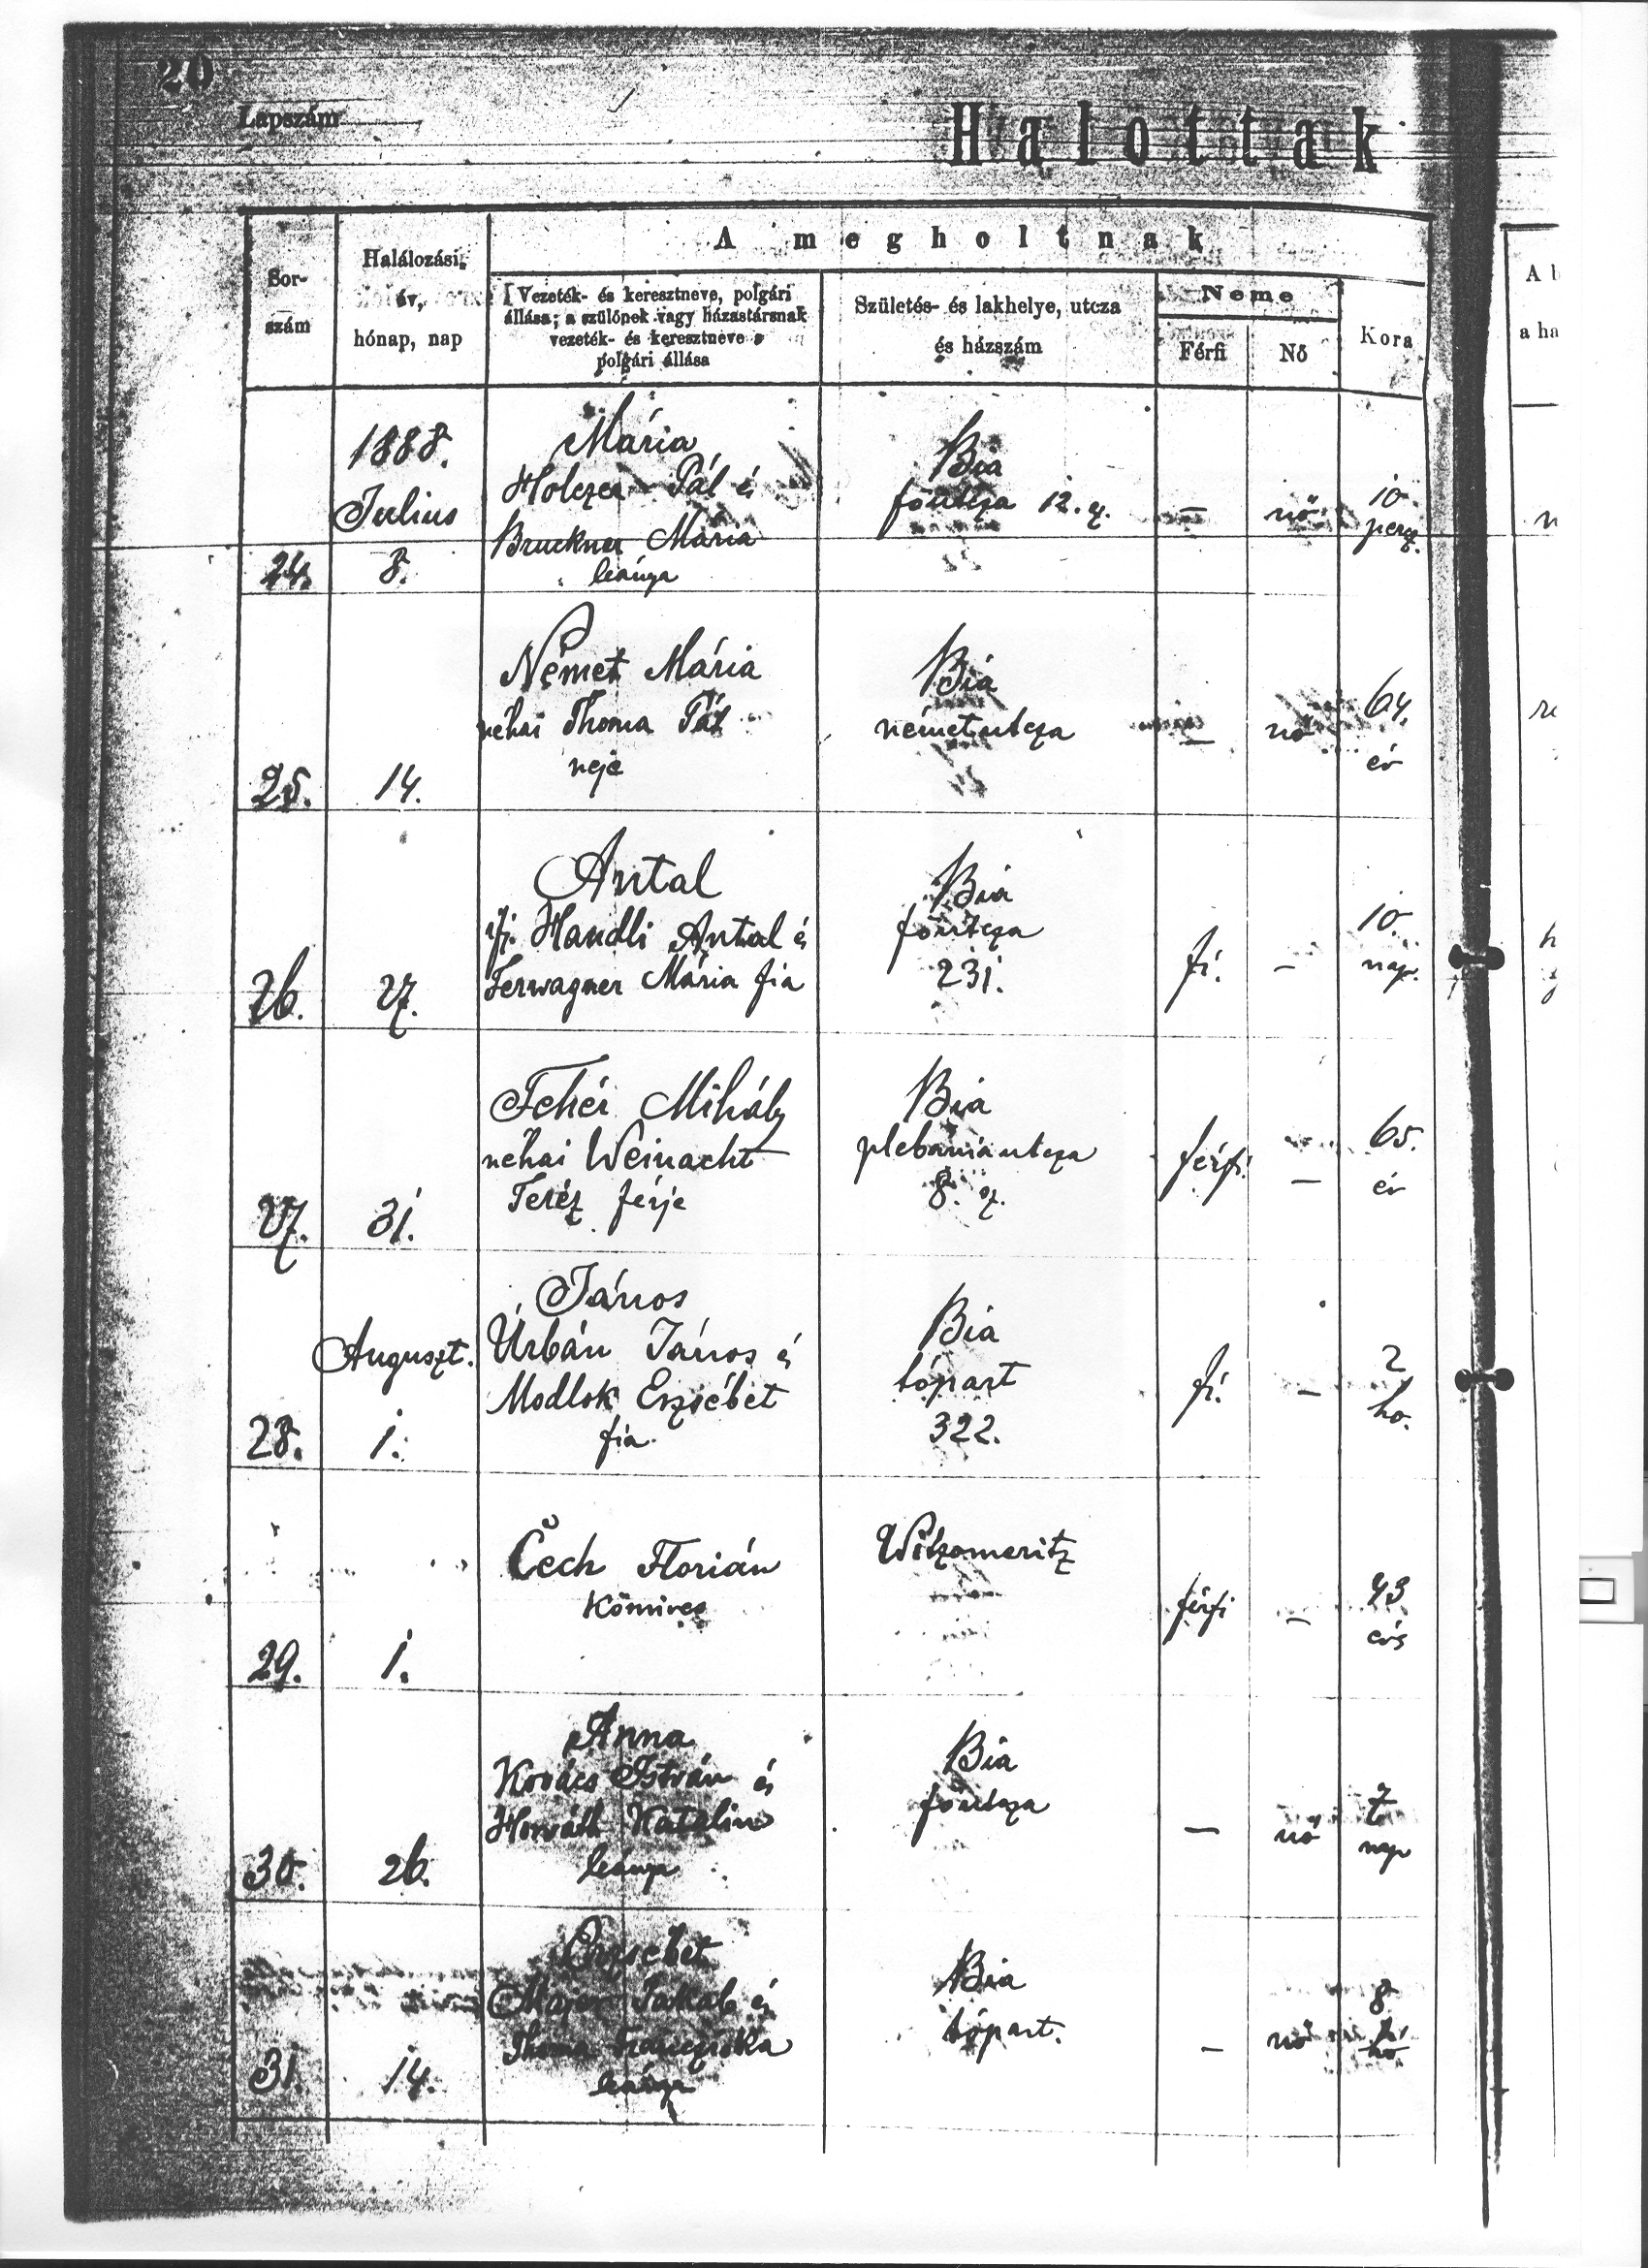 20
Lapszám
Halottak
A megholtnak
Sor-
szám
Halálozási
év,
hónap, nap
Vezeték- és keresztneve, polgári
állása; a szülőnek vagy házastársnak
vezeték- és keresztneve s
polgári állása
Születés- és lakhelye, utcza
és házszám
Neme
Férfi
Nő
Kora
A
a ha
1888.
Julius
24.
8.
Mária
Holczer Pál és
Bruckner Mária
leánya
Bia
főutcza 12.
–
nő
10
percz.
25.
14.
Német Mária
néhai Thoma Pál
neje
Bia
németutcza
–
nő
64.
év
26.
27.
Antal
ifj. Handli Antal é
Ferwagner Mária fia
Bia
főutcza
231.
fi.
–
10.
nap.
27.
31.
Fehér Mihály
néhai Weinacht
Teréz férje
Bia
plebániautcza
8.
férfi
–
65.
év
Auguszt.
28.
1.
János
Urbán János é
Modlok Erzsébet
fia
Bia
tópart
322.
fi.
–
2
ho.
29.
1.
Čech Florián
Kőmives
Witzomeritz
férfi
–
43
éves
30.
26.
Anna
Kovács István és
Horváth Katalin
leánya
Bia
főutcza
–
nő
7
nap
31.
14.
Erzsébet
Majer Jakab és
Thoma Francziska
leánya
Bia
tópart.
–
nő
8
hó